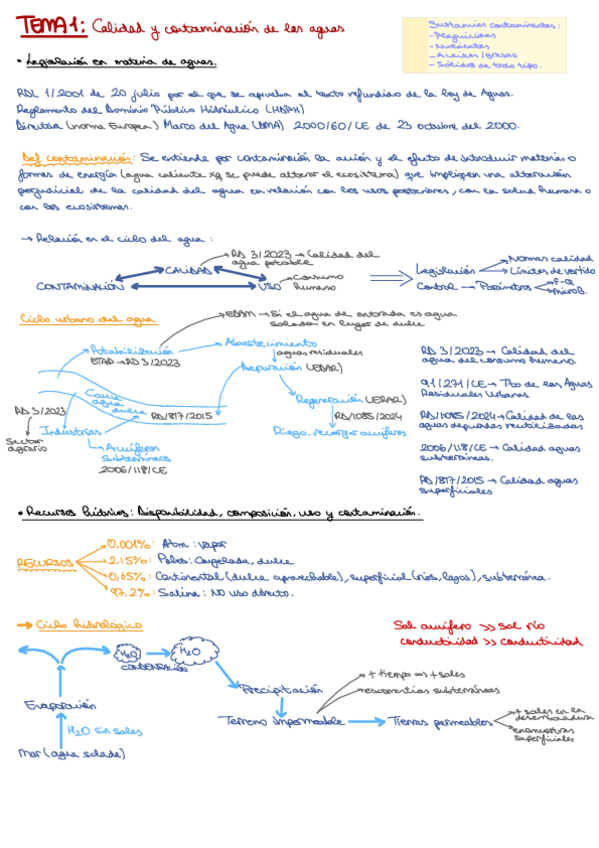 TEMA 1: Calidad y contaminación de las aguas
Sustancias contaminantes:
- Plaguicidas
- Nutrientes
- Aceites/grasas
- Sólidos de todo tipo.
• Legislación en materia de aguas.
RDL 1/2001 de 20 julio por el que se aprueba el texto refundido de la ley de Aguas.
Reglamento del Dominio Público Hidráulico (HDPH)
Directiva (norma Europea) Marco del Agua (DMA) 2000/60/CE de 23 octubre del 2000.
Def contaminación: Se entiende por contaminación la acción y el efecto de introducir materias o
formas de energía (agua caliente xq se puede alterar el ecosistema) que impliquen una alteración
perjudicial de la calidad del agua en relación con los usos posteriores, con la salud humana o
con los ecosistemas.
→ Relación en el ciclo del agua:
RD 3/2023 → Calidad del
agua potable
CALIDAD
CONTAMINACIÓN
USO
Consumo
humano
Legislación
Normas calidad
Límites de vertido
Control → Parámetros
F-Q
microB.
Ciclo urbano del agua
EDAM → Si el agua de entrada es agua
salada en lugar de dulce
Potabilización
ETAP → RD 3/2023
Abastecimiento
aguas residuales
Depuración (EDAR)
Cauce
agua
dulce
RD/817/2015
Regeneración (ERAR)
RD/1085/2024
Riego, recargar acuíferos
RD 3/2023
Sector
agrario
Industrias
Acuíferos
subterráneos
2006/118/CE
RD 3/2023 → Calidad del
agua del consumo humano
91/271/CE → Tto de las Aguas
Residuales Urbanas
RD/1085/2024 → Calidad de las
aguas depuradas reutilizadas
2006/118/CE → Calidad aguas
subterráneas.
RD/817/2015 → Calidad aguas
superficiales
• Recursos hídricos: Disponibilidad, composición, uso y contaminación.
RECURSOS
0,001%: Atm: vapor
2,15%: Polos: Congelada, dulce
0,65%: Continental (dulce aprovechable), superficial (ríos, lagos), subterránea.
97,2%: Salina: NO uso directo.
→ Ciclo hidrológico
Sal acuífero >> sal río
conductividad >> conductividad
H₂O
H₂O
CONDENSACIÓN
Precipitación
+ tiempo => + sales
escorrentías subterráneas
Evaporación
Terreno impermeable
Tierras permeables
+ sales en la
desembocadura
escorrentías
superficiales
H₂O sin sales
Mar (agua salada)